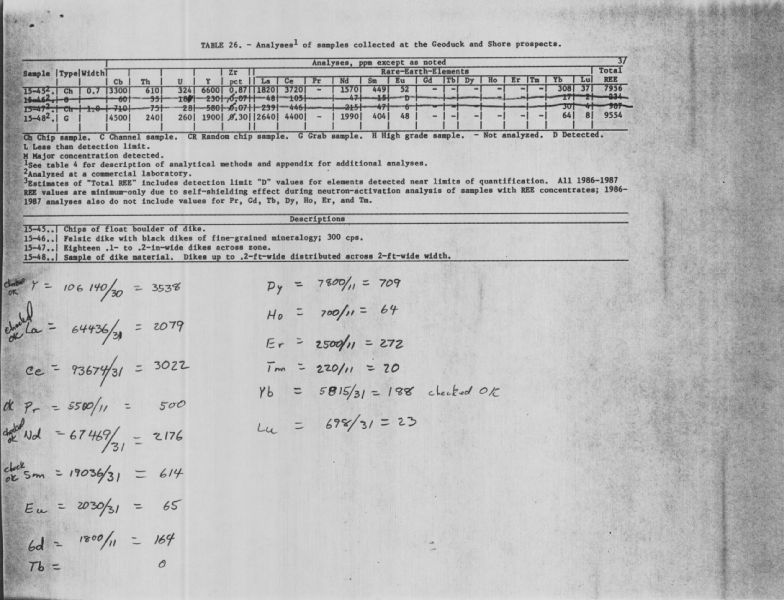 TABLE 26. - Analyses¹ of samples collected at the Geoduck and Shore prospects.
Analyses, ppm except as noted 3/
Sample |Type|Width| Zr | Rare-Earth-Elements | Total
Cb | Th | U | Y | pct | La | Ce | Pr | Nd | Sm | Eu | Gd | Tb | Dy | Ho | Er | Tm | Yb | Lu | REE
15-45². | Ch | 0.7 | 3300 | 610 | 324 | 6600 | 0.87 | 1820 | 3720 | - | 1570 | 449 | 52 | 308 | 37 | 7956
15-46². 60 | 55 | 230 | 0.07 | 48 | 105 | 47 | 15 | D
15-47². | Ch | 1.0 | 710 | 75 | 28 | 580 | 0.07 | 239 | 446 | - | 215 | 47 | 6 | - | - | - | - | - | - | 30 | 4 | 987
15-48². | G | |4500 | 240 | 260 | 1900 | 0.30 | 2640 | 4400 | - | 1990 | 404 | 48 | 64 | 8 | 9554
Ch Chip sample. C Channel sample. CR Random chip sample. G Grab sample. H High grade sample. - Not analyzed. D Detected.
L Less than detection limit.
M Major concentration detected.
¹See table 4 for description of analytical methods and appendix for additional analyses.
²Analyzed at a commercial laboratory.
³Estimates of "Total REE" includes detection limit "D" values for elements detected near limits of quantification. All 1986-1987
REE values are minimum-only due to self-shielding effect during neutron-activation analysis of samples with REE concentrates; 1986-
1987 analyses also do not include values for Pr, Gd, Tb, Dy, Ho, Er, and Tm.
Descriptions
15-45..| Chips of float boulder of dike.
15-46..| Felsic dike with black dikes of fine-grained mineralogy; 300 cps.
15-47..| Eighteen .1- to .2-in-wide dikes across zone.
15-48..| Sample of dike material. Dikes up to .2-ft-wide distributed across 2-ft-wide width.
checked OK Y = 106 140/30 = 3538
checked OK La = 64436/31 = 2079
Ce = 93674/31 = 3022
OK Pr = 5500/11 = 500
checked OK Nd = 67469/31 = 2176
check OK Sm = 19036/31 = 614
Eu = 2030/31 = 65
Gd = 1800/11 = 164
Tb = 0
Dy = 7800/11 = 709
Ho = 700/11 = 64
Er = 2500/11 = 272
Tm = 220/11 = 20
Yb = 5815/31 = 188 checked OK
Lu = 698/31 = 23